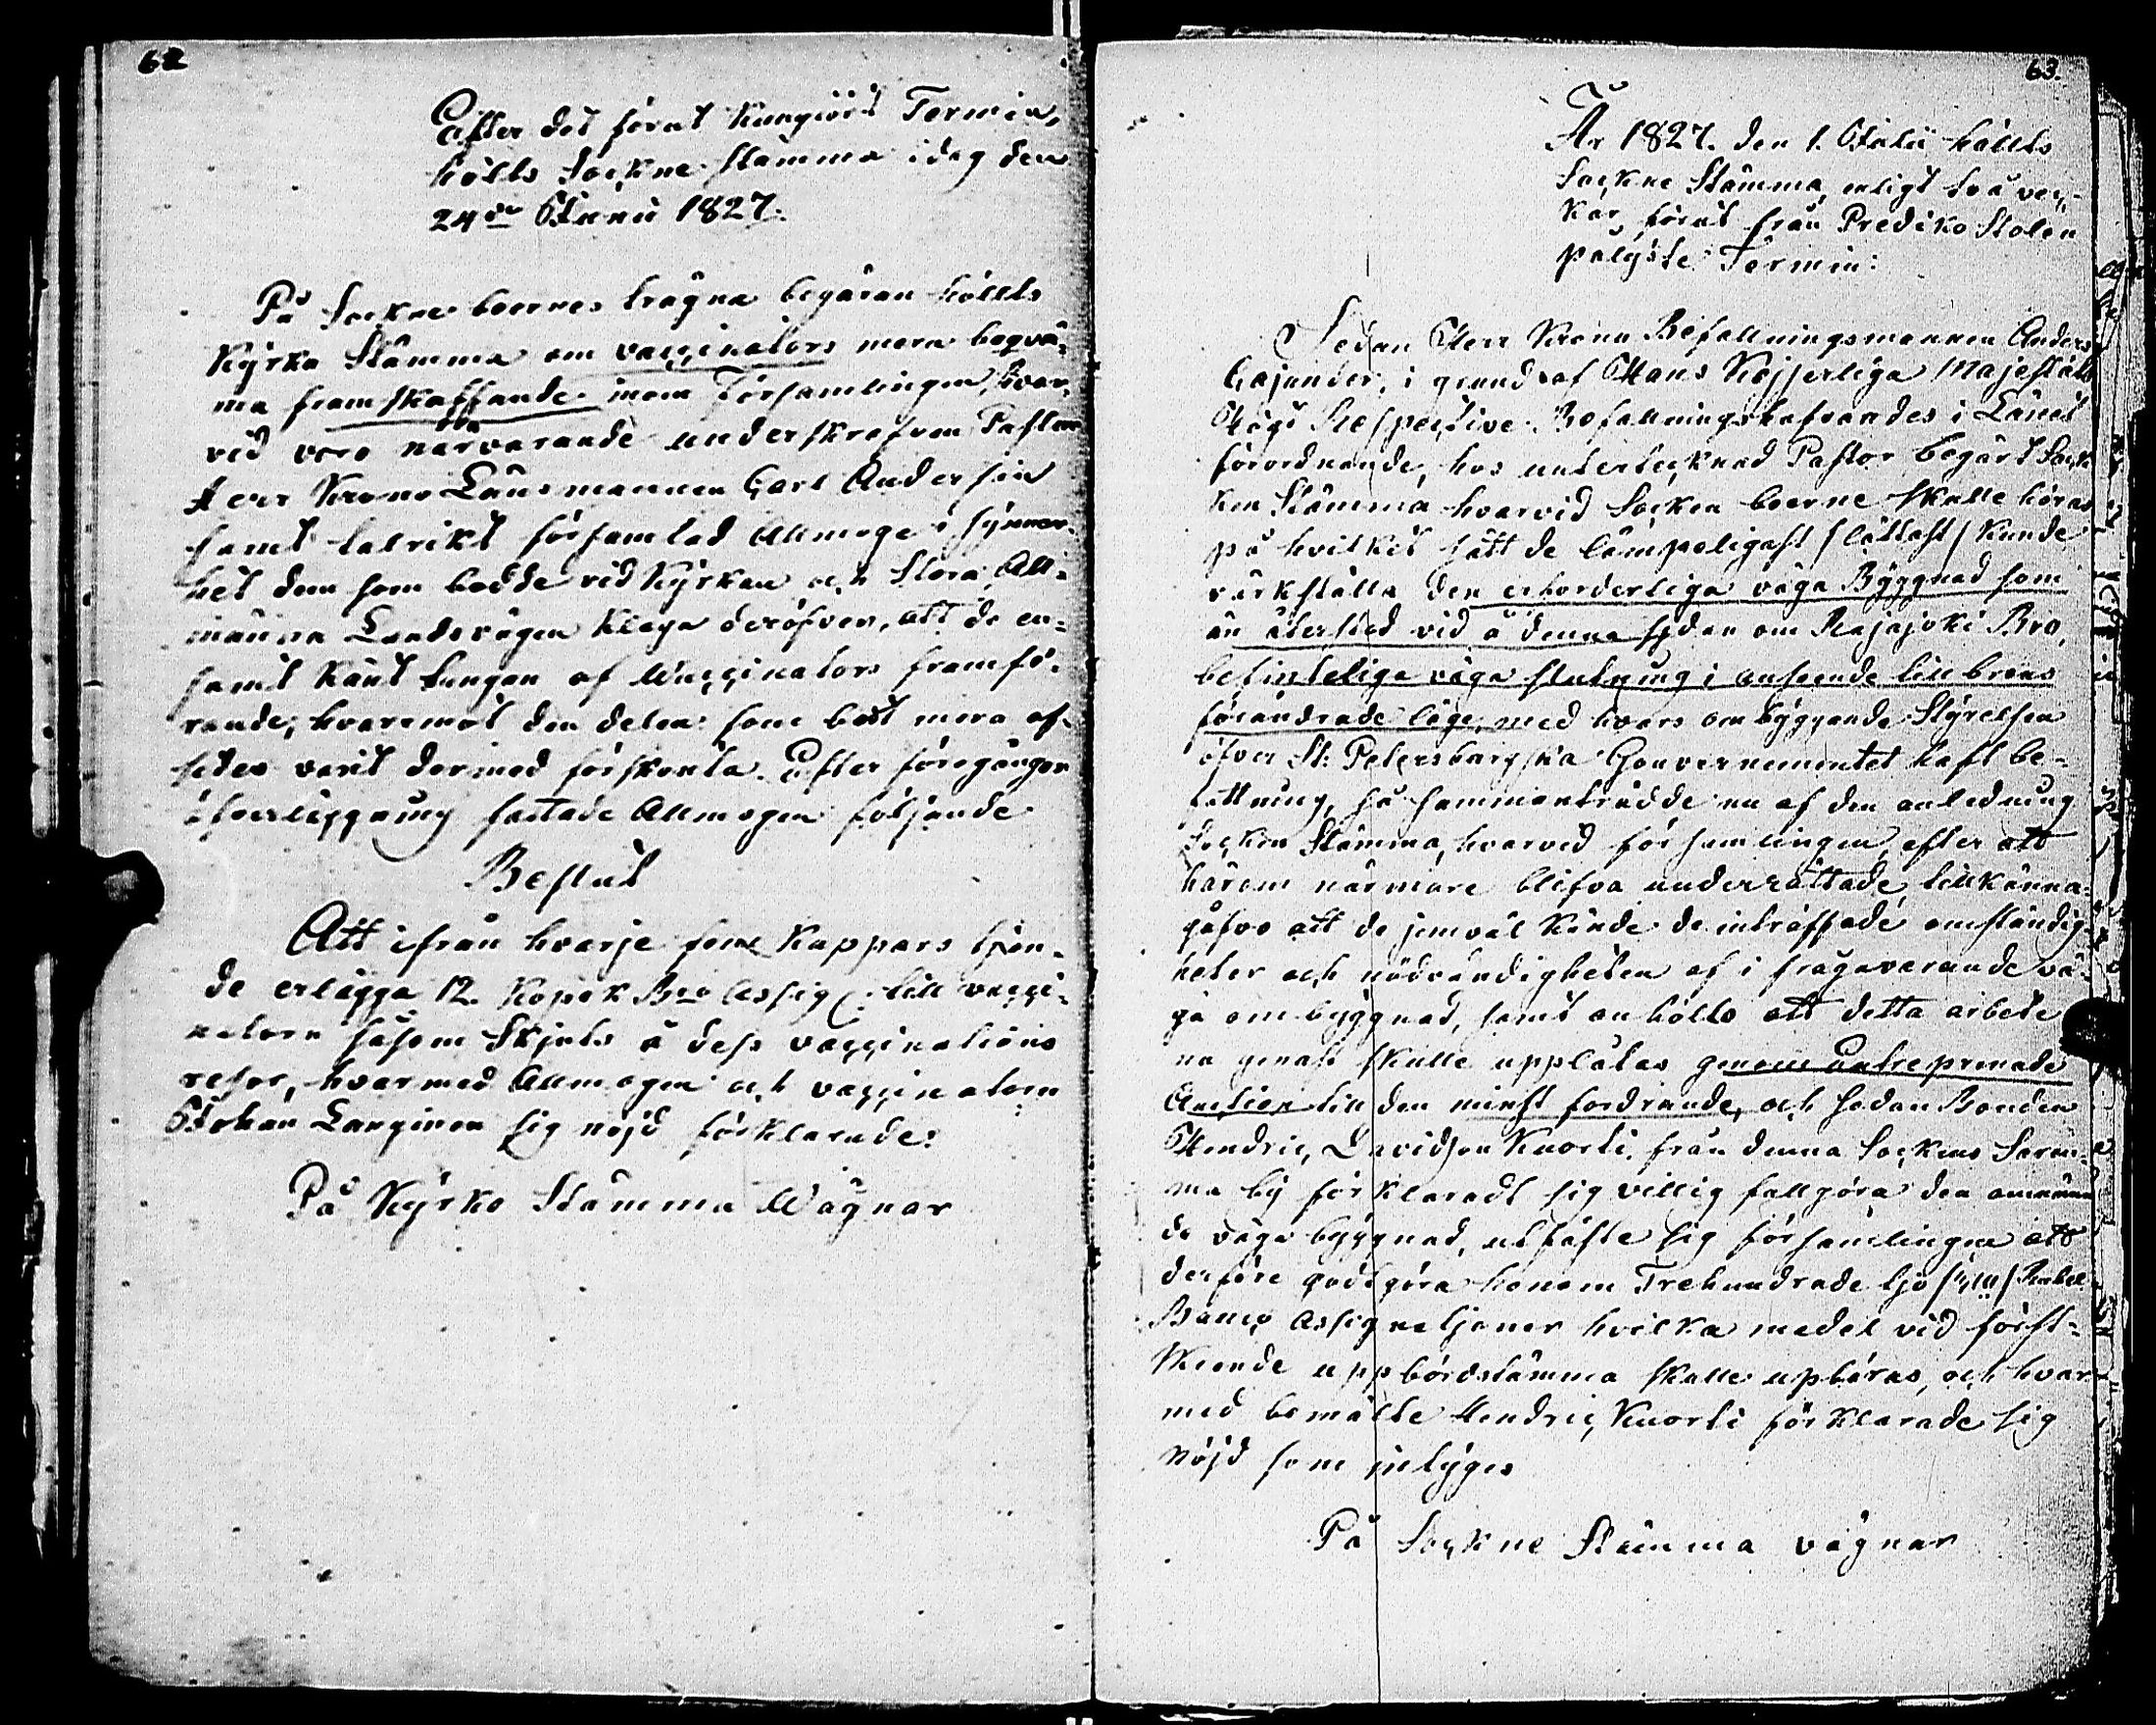 62
Efter det förut Kungiört Termin,
hölts Sockne Stämma i dag den
24de Junii 1827.
På Socknebоernes trägna begäran höllts
Kyrko Stämma om vaccinators mera beqvä-
ma framskaffande inom Församlingen, hvar-
vid voro närvarande underskrefven Pastor
Herr Krono Länsmannen Carl Andersin
samt talrikt församlad Allmoge i synner-
het dem som bodde vid Kyrkan och Stora All-
männa Landsvägen klaga deröfver, att de en-
samt känt tungan af Vaccinators framfö-
rande, hvaremot den delen som bott mera af-
sides varit dermed förskonta. Efter föregången
öfverläggning fattade Allmogen följande
Beslut
Att ifrån hvarje fem Kappars tjon-
de erlägga 12. Kopek Bco Assig: till vacci-
natorn såsom Skjuts å dess vaccinations
resor, hvarmed Allmogen och vaccinatorn
Johan Langinen sig nöjd förklarade:
På Kyrko Stämma Wägnar
63.
År 1827. den 1. Julii hölts
Sockne Stämma enligt två vec-
kor förut från Prediko Stolen
pålyste Termin:
Sedan Herr Krono Befallningsmannen Anders
Cajander, i grund af Hans Kejserliga Majestäts
Högt Respective Befallningshafvandes i Länet
förordnande, hos untertecknad Pastor begärt Soc-
ken Stämma hvarvid Socken boerne skulle höras
på hvilket sätt de lämpeligast /lättast/ kunde
värkställa den erforderliga väga Byggnad som
än återstod vid å denna sydan om Rajajoki Bro,
befintelige väga slutning i anseende till brons
förändrade läge, med hvars ombyggande Styrelsen
öfver St: Petersburgska Gouvernementet haft be-
fattning, så sammanträdde nu af den anledning
Socken Stämma, hvarvid församlingen, efter att
härom närmare blifva underrättade, tillkänna-
gåfvo att de jemväl kände de inträffade omständig-
heter och nödvändigheten af i frågavarande vä-
ga ombyggnad, samt an hölls att detta arbete
nu genast skulle upplåtas genom entreprenade
Auction till den minst fordrande, och sedan Bonden
Hendric Davidson Kuorti från denna Sockens
ma by förklaradt sig villig fullgöra den omnämn
de väga byggnad, utfäste sig församlingen att
derföre godtgöra honom Trehundrade tjo Rubel
Banco Assignationer hvilka medel vid först-
skeende uppbördstämma skulle upbäras, och hvar-
med bemälte Hendric Kuorti förklarade sig
nöjd som
På Sockne Stämma vägnar